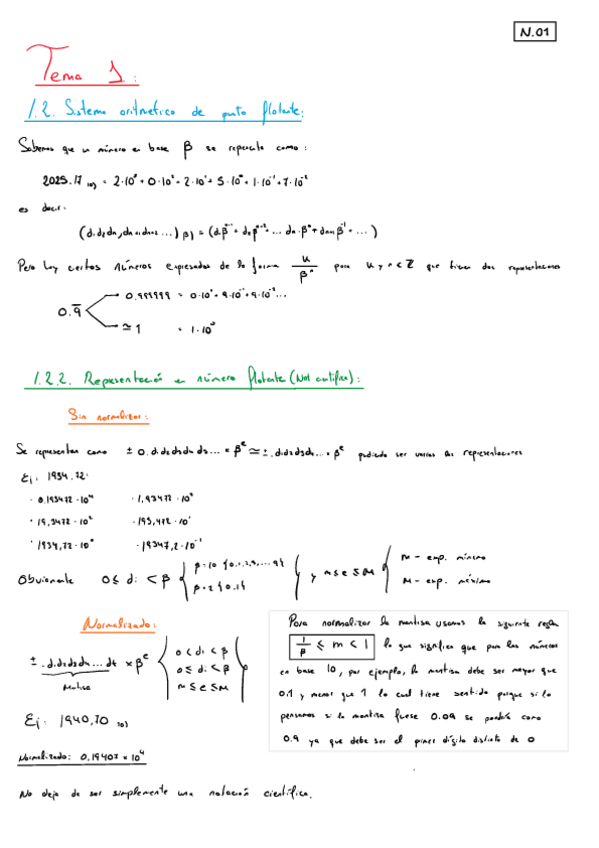 N.01
Tema 1:
1.2. Sistema aritmetico de punto flotante:
Sabemos que un número en base β se representa como:
2025.17 10) = 2·10³ + 0·10² + 2·10¹ + 5·10⁰ + 1·10⁻¹ + 7·10⁻²
es decir:
Pero hay ciertos números expresados de la forma K/βⁿ para K y n ∈ Z que tienen dos representaciones
0.999999 = 0·10⁰ + 9·10⁻¹ + 9·10⁻² ...
0.9̅
≃ 1 = 1·10⁰
1.2.2. Representación en número flotante (Not científica):
Sin normalizar:
Se representan como ± 0.d₁d₂d₃d₄d₅... × βᵉ ≃ ±.d₁d₂d₃d₄... × βᵉ pudiendo ser varias las representaciones
Ej: 1934.72:
· 0.193472·10⁴ · 1,93472·10³
· 19,3472·10² · 193,472·10¹
· 1934,72·10⁰ · 19347,2·10⁻¹
β=10 {0,1,2,3,...,9} m - exp. mínimo
Obviamente 0 ≤ dᵢ < β y m ≤ e ≤ M
β=2 {0,1} M - exp. máximo
Normalizado:
0 < d₁ < β
±.d₁d₂d₃d₄...dt × βᵉ 0 ≤ dᵢ < β
Mantisa m ≤ e ≤ M
Ej: 1940,70 10)
Normalizado: 0,19407 × 10⁴
Para normalizar la mantisa usamos la siguiente regla
1/β ≤ m < 1 lo que significa que para los números
en base 10, por ejemplo, la mantisa debe ser mayor que
0.1 y menor que 1 lo cual tiene sentido porque si lo
pensamos si la mantisa fuese 0.09 se pondría como
0.9 ya que debe ser el primer dígito distinto de 0
No deja de ser simplemente una notación científica.